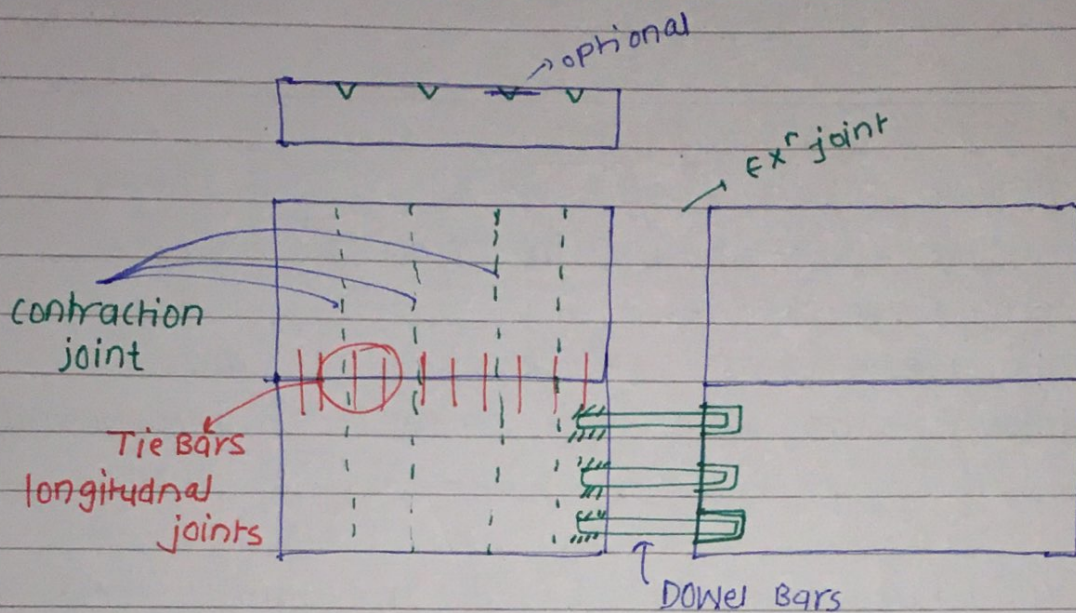 optional
Exʳ joint
contraction
joint
Tie Bars
longitudnal
joints
Dowel Bars